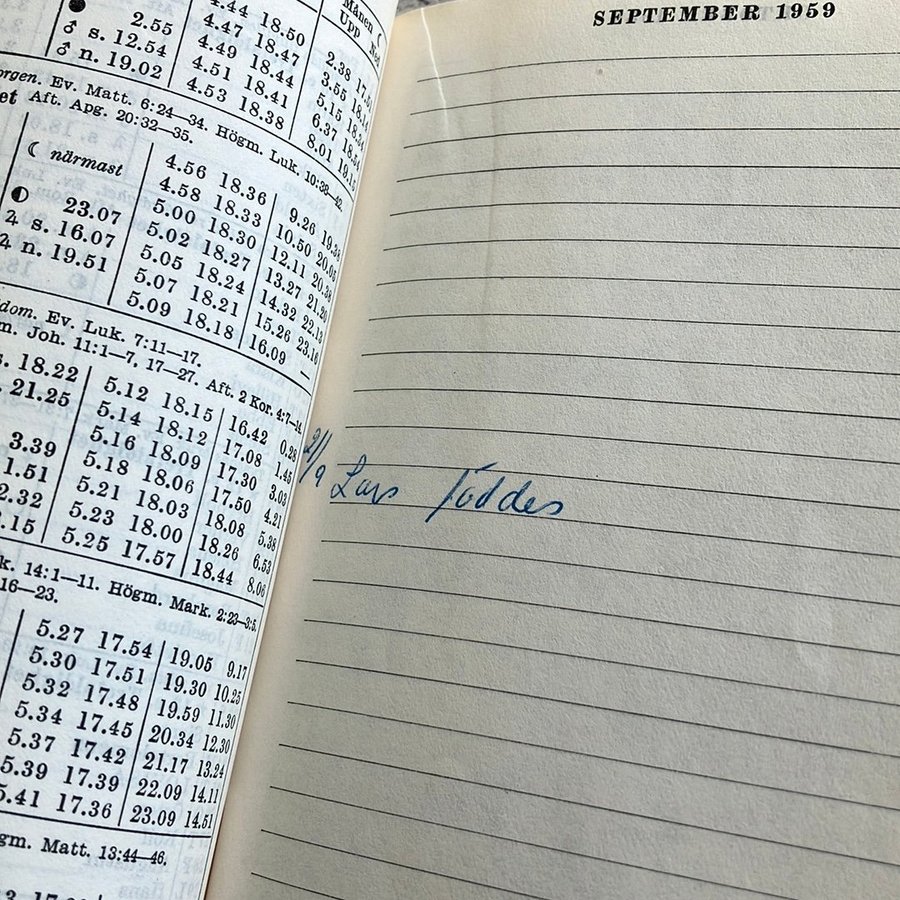 4.44 18.50
2.55 4.47 18.47 2.38
♂ s. 12.54 4.49 18.44 3.55
♂ n. 19.02 4.51 18.41 5.15
4.53 18.38 6.37
8.01
Månen ☾
Upp
Ev. Matt. 6:24—34. Högm. Luk. 10:38—42.
Aft. Apg. 20:32—35.
☾ närmast 4.56 18.36 9.26
4.58 18.33 10.50 20.05
23.07 5.00 18.30 12.11 20.38
♃ s. 16.07 5.02 18.27 13.27 21.20
♃ n. 19.51 5.05 18.24 14.32 22.13
5.07 18.21 15.26 23.16
5.09 18.18 16.09 —
dom. Ev. Luk. 7:11—17.
Joh. 11:1—7, 17—27. Aft. 2 Kor. 4:7—14.
s. 18.22 5.12 18.15 16.42 0.28
21.25 5.14 18.12 17.08 1.45
5.16 18.09 17.30 3.03
3.39 5.18 18.06 17.50 4.21
1.51 5.21 18.03 18.08 5.38
2.32 5.23 18.00 18.26 6.53
.15 5.25 17.57 18.44 8.06
k. 14:1—11. Högm. Mark. 2:23—3:5.
16—23.
5.27 17.54 19.05 9.17
5.30 17.51 19.30 10.25
5.32 17.48 19.59 11.30
5.34 17.45 20.34 12.30
5.37 17.42 21.17 13.24
5.39 17.39 22.09 14.11
5.41 17.36 23.09 14.51
gm. Matt. 13:44—46.
SEPTEMBER 1959
21/9 Lars föddes